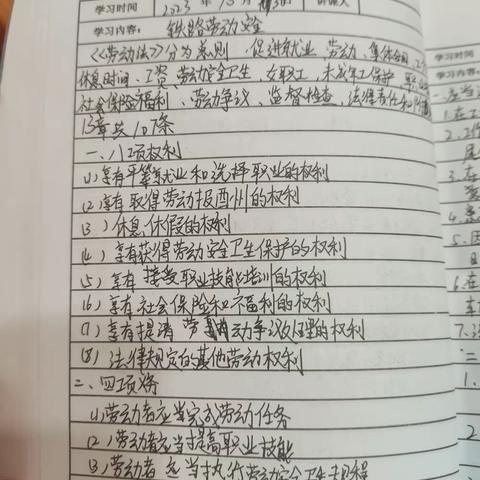 学习时间 2023 年 10月 讲课人
学习内容: 铁路劳动安全
《劳动法》分为总则、促进就业、劳动、集体合同、工
休息时间、工资、劳动安全卫生、女职工、未成年工保护、职
社会保险福利、劳动争议、监督检查、法律责任和附则
13章共107条
一、八项权利
(1)享有平等就业和选择职业的权利
(2)享有取得劳动报酬的权利
(3)休息休假的权利
(4)享有获得劳动安全卫生保护的权利
(5)享有接受职业技能培训的权利
(6)享有社会保险和福利的权利
(7)享有提请劳动争议处理的权利
(8)法律规定的其他劳动权利
二、四项
(1)劳动者应当完成劳动任务
(2)劳动者应当提高职业技能
(3)劳动者应当执行劳动安全卫生规程
学习时间
学习内容:
1.在工
2.工作
3.在
5.因
6.在
7.
二
1.
2